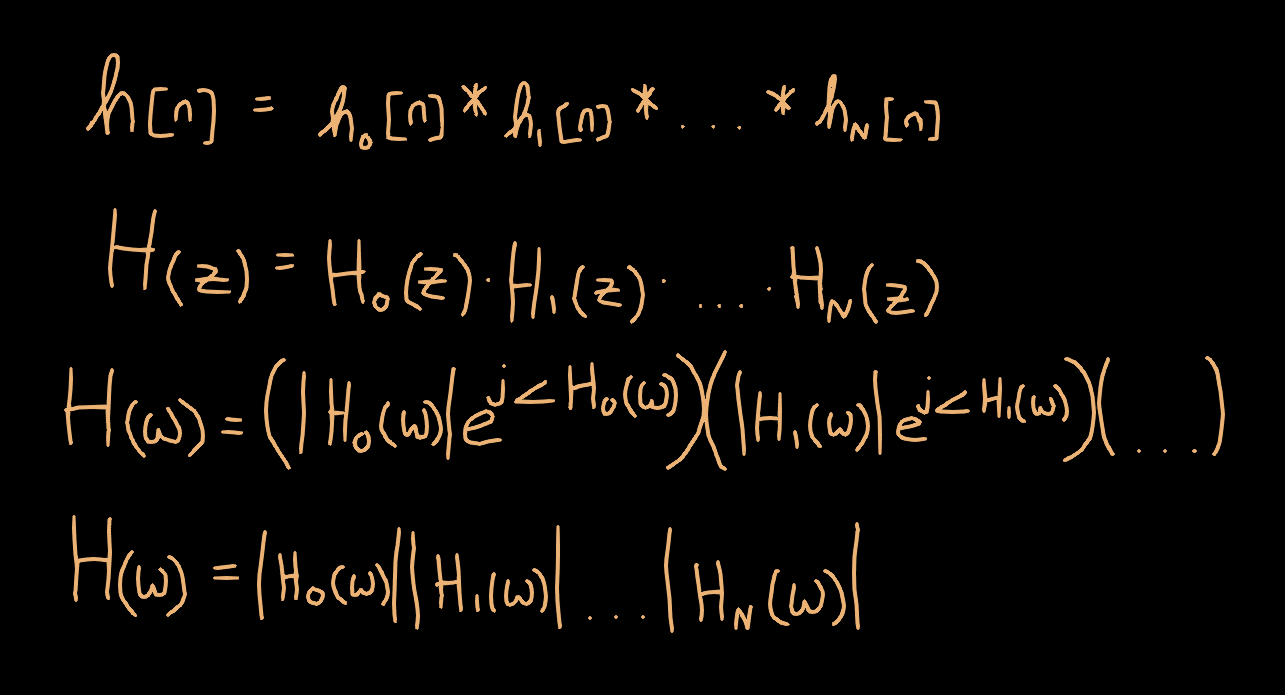 h[n] = h₀[n] * h₁[n] * .... * h_N[n]
H(z) = H₀(z) · H₁(z) · .... · H_N(z)
H(ω) = (|H₀(ω)| e^{j∠H₀(ω)})(|H₁(ω)| e^{j∠H₁(ω)})(...)
H(ω) = |H₀(ω)||H₁(ω)| ... |H_N(ω)|